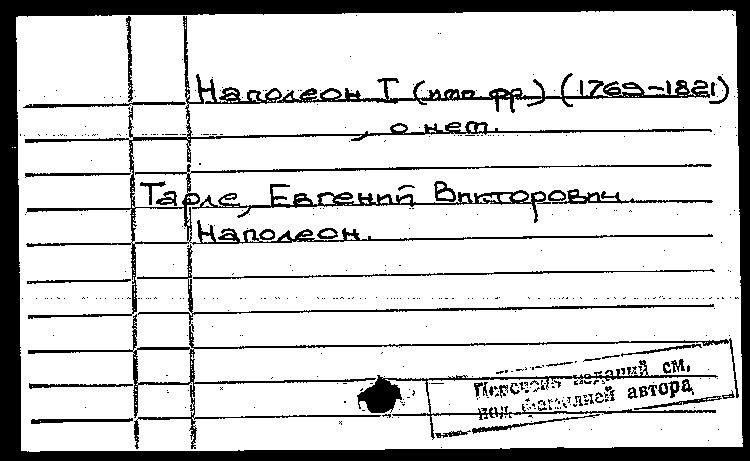 Наполеон I (имп фр.) (1769-1821)
, о нем.
Тарле, Евгений Викторович.
Наполеон.
Перечень изданий см.
под фамилией автора